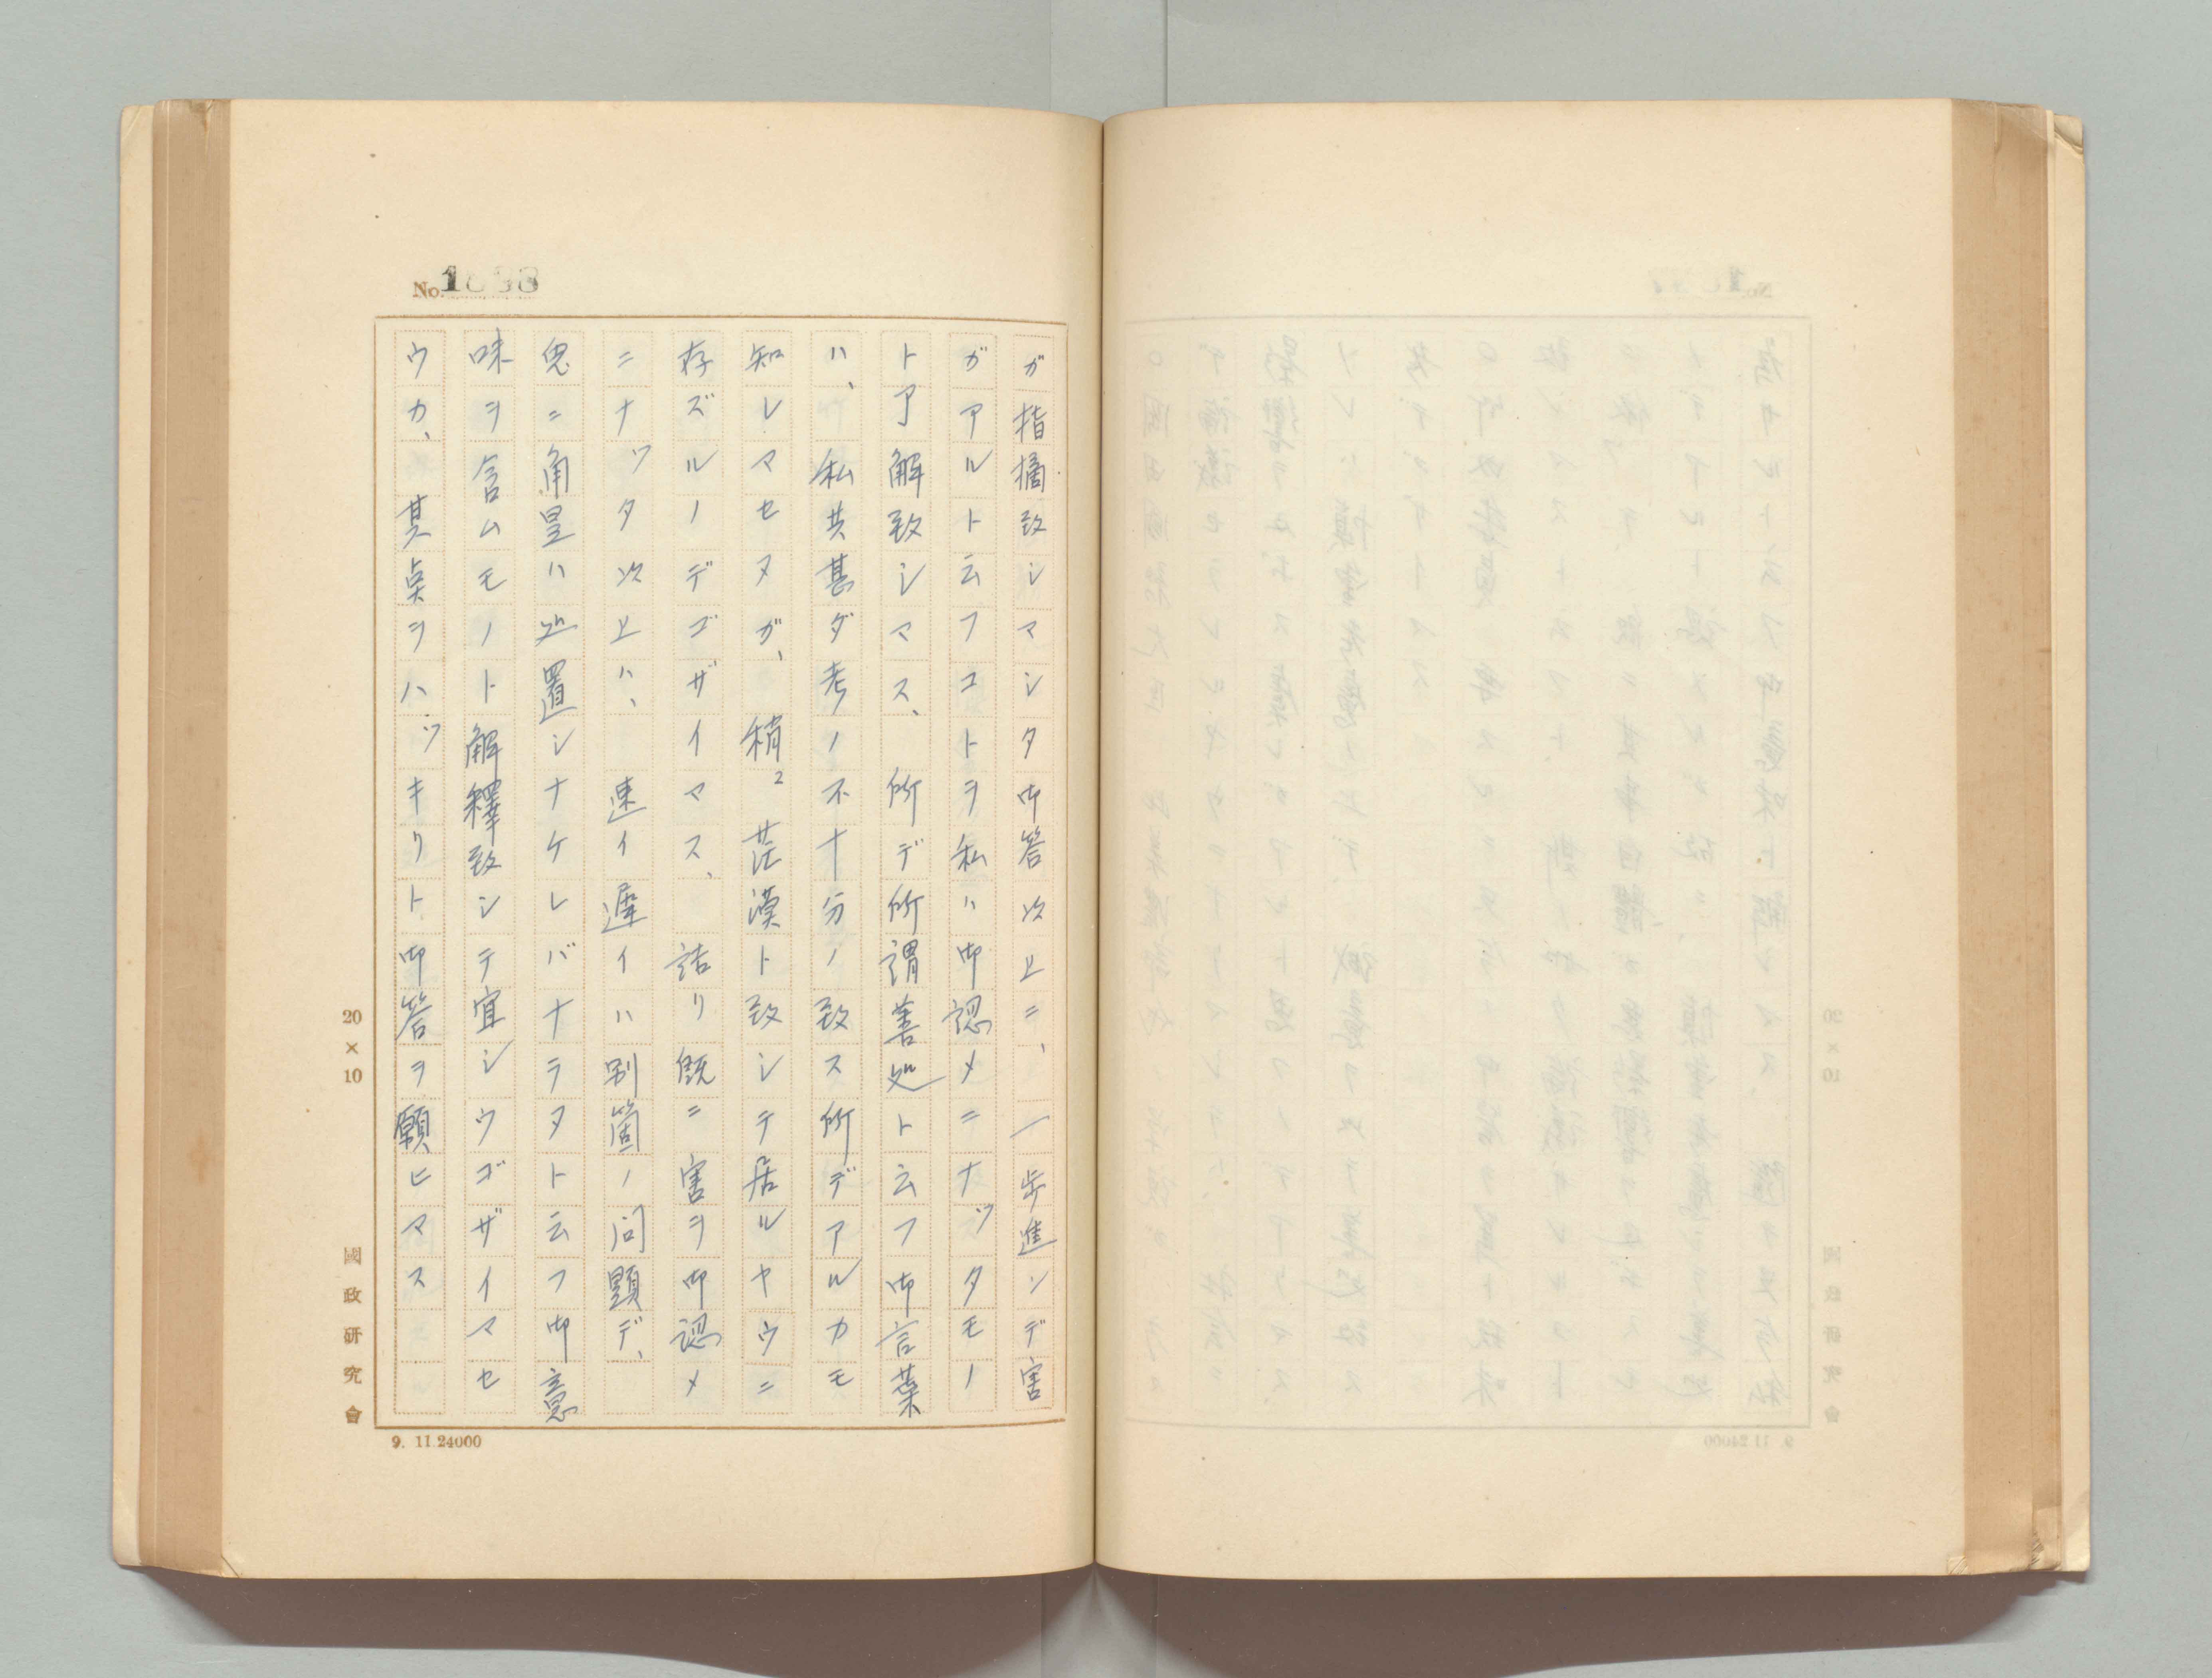 No. 1898
ガ指摘致シマシタ御答以上ニ、一歩進ンデ害
ガアルト云フコトヲ私ハ御認メニナッタモノ
ト了解致シマス、所デ所謂善処ト云フ御言葉
ハ、私共甚ダ考ノ不十分ノ致ス所デアルカモ
知レマセヌガ、稍〻茫漠ト致シテ居ルヤウニ
存ズルノデゴザイマス、詰リ既ニ害ヲ御認メ
ニナッタ以上ハ、速イ遅イハ別箇ノ問題デ、
兎ニ角是ハ処置シナケレバナラヌト云フ御意
味ヲ含ムモノト解釋致シテ宜シウゴザイマセ
ウカ、其点ヲハッキリト御答ヲ願ヒマス
20×10
國政研究會
9. 11.24000